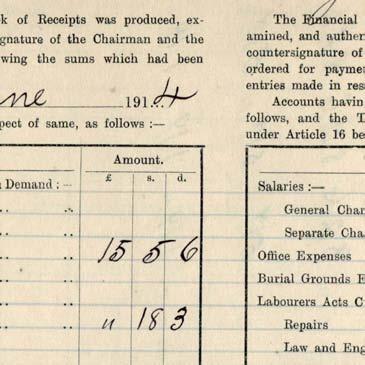 k of Receipts was produced, ex-
gnature of the Chairman and the
wing the sums which had been
ne 191 4
pect of same, as follows :—
Amount.
n Demand :— £ s. d.
15 5 6
" 18 3
The Financial
amined, and authen
countersignature of
ordered for payme
entries made in res
Accounts havin
follows, and the T
under Article 16 be
Salaries :—
General Char
Separate Cha
Office Expenses
Burial Grounds E
Labourers Acts C
Repairs
Law and Eng